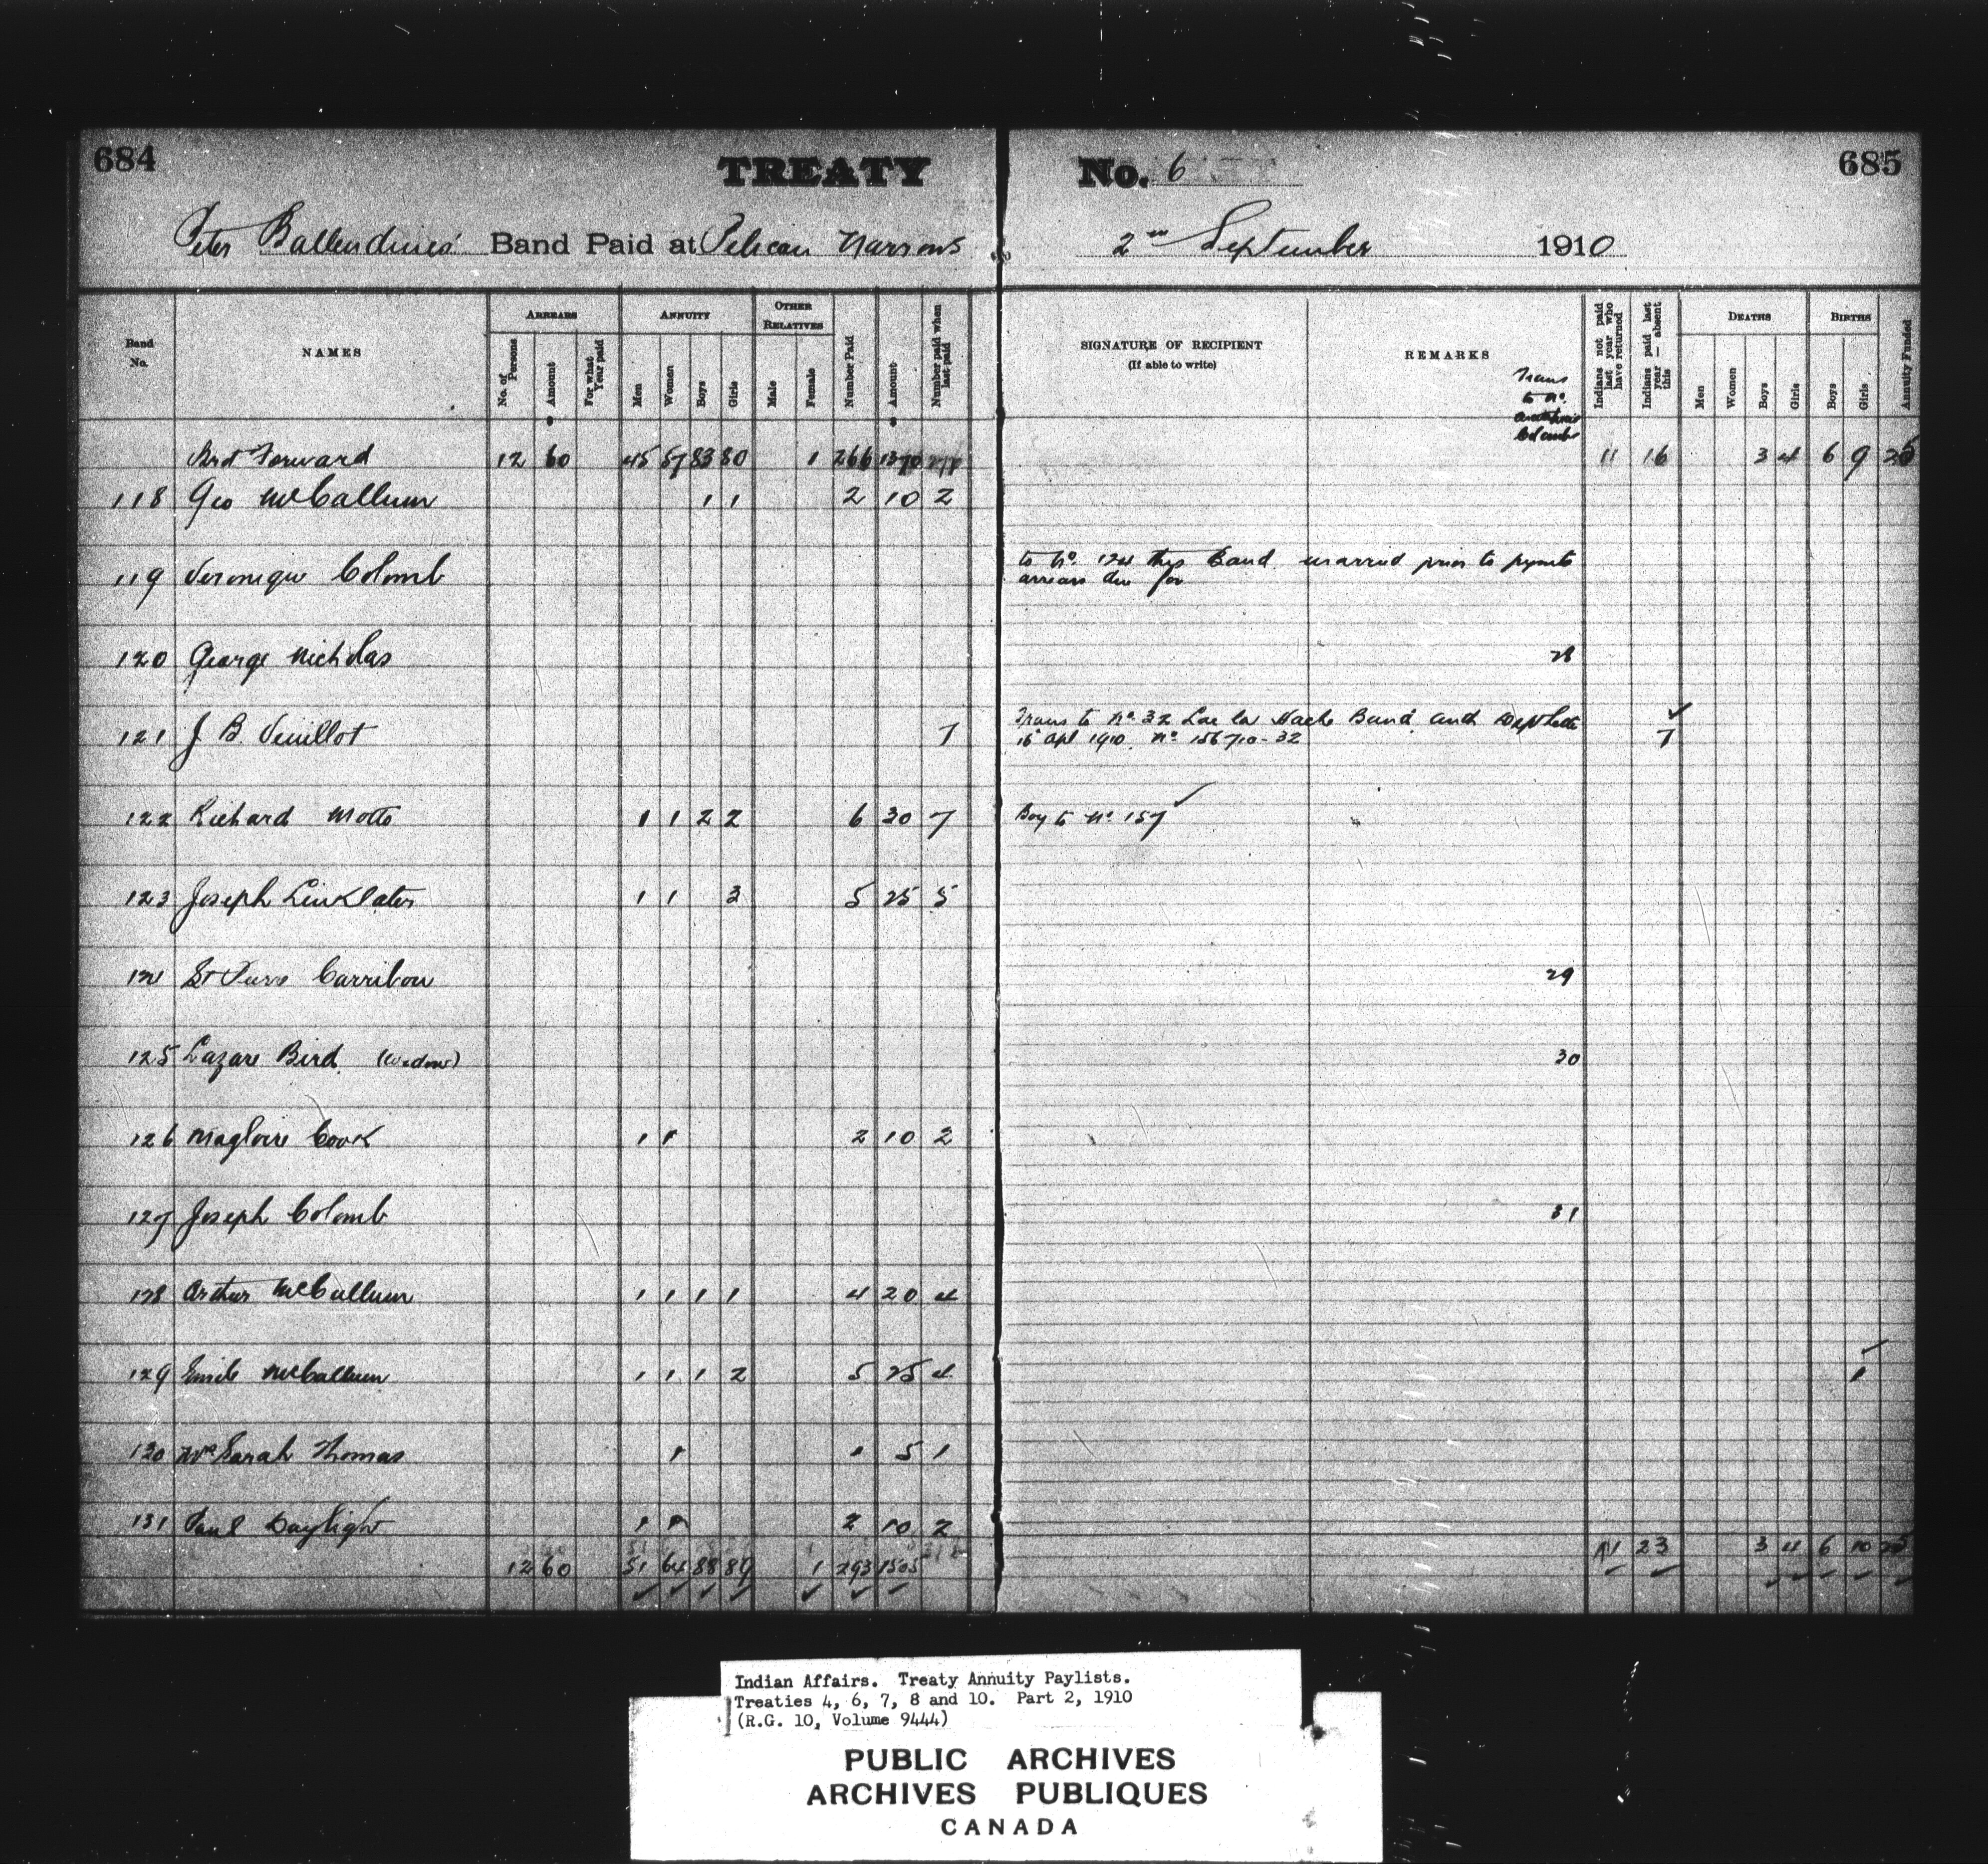 684
TREATY
No. 6
685
Peter Ballendine's Band Paid at Pelican Narrows
2nd September 1910
Band No.
NAMES
ARREARS
No. of Persons
Amount
For what Year paid
ANNUITY
Men
Women
Boys
Girls
OTHER RELATIVES
Male
Female
Number Paid
Amount
Number paid when last paid
SIGNATURE OF RECIPIENT
(If able to write)
REMARKS
Trans
to No.
Colomb
Indians not paid last year who have returned
Indians paid last year — absent this
DEATHS
Men
Women
Boys
Girls
BIRTHS
Boys
Girls
Annuity Funded
Brot Forward 12 60 45 57 83 80 1 266 1370 11 16 3 4 6 9
118 Geo McCallum 1 1 2 10 2
119 Veronique Colomb to No. 124 this Band married prior to paymts
arrears due for
120 George Nicholas 28
121 J B. Vuillot 7 Trans to No. 32 Lac la Hache Band auth Dept lette 7
16 Apl 1910. No. 156710-32
122 Richard Motto 1 1 2 2 6 30 7 Boy to No. 157
123 Joseph Linklater 1 1 3 5 25 5
124 St Pierre Carribou 29
125 Lazare Bird (Widow) 30
126 Magloire Cook 1 1 2 10 2
127 Joseph Colomb 31
128 Arthur McCallum 1 1 1 1 4 20 4
129 Emile McCallum 1 1 1 2 5 25 4 1
130 Sarah Thomas 1 1 5 1
131 Paul Daylight 1 1 2 10 2
12 60 51 64 88 89 1 293 1505 11 23 3 4 6 10
Indian Affairs. Treaty Annuity Paylists.
Treaties 4, 6, 7, 8 and 10. Part 2, 1910
(R.G. 10, Volume 9444)
PUBLIC ARCHIVES
ARCHIVES PUBLIQUES
CANADA